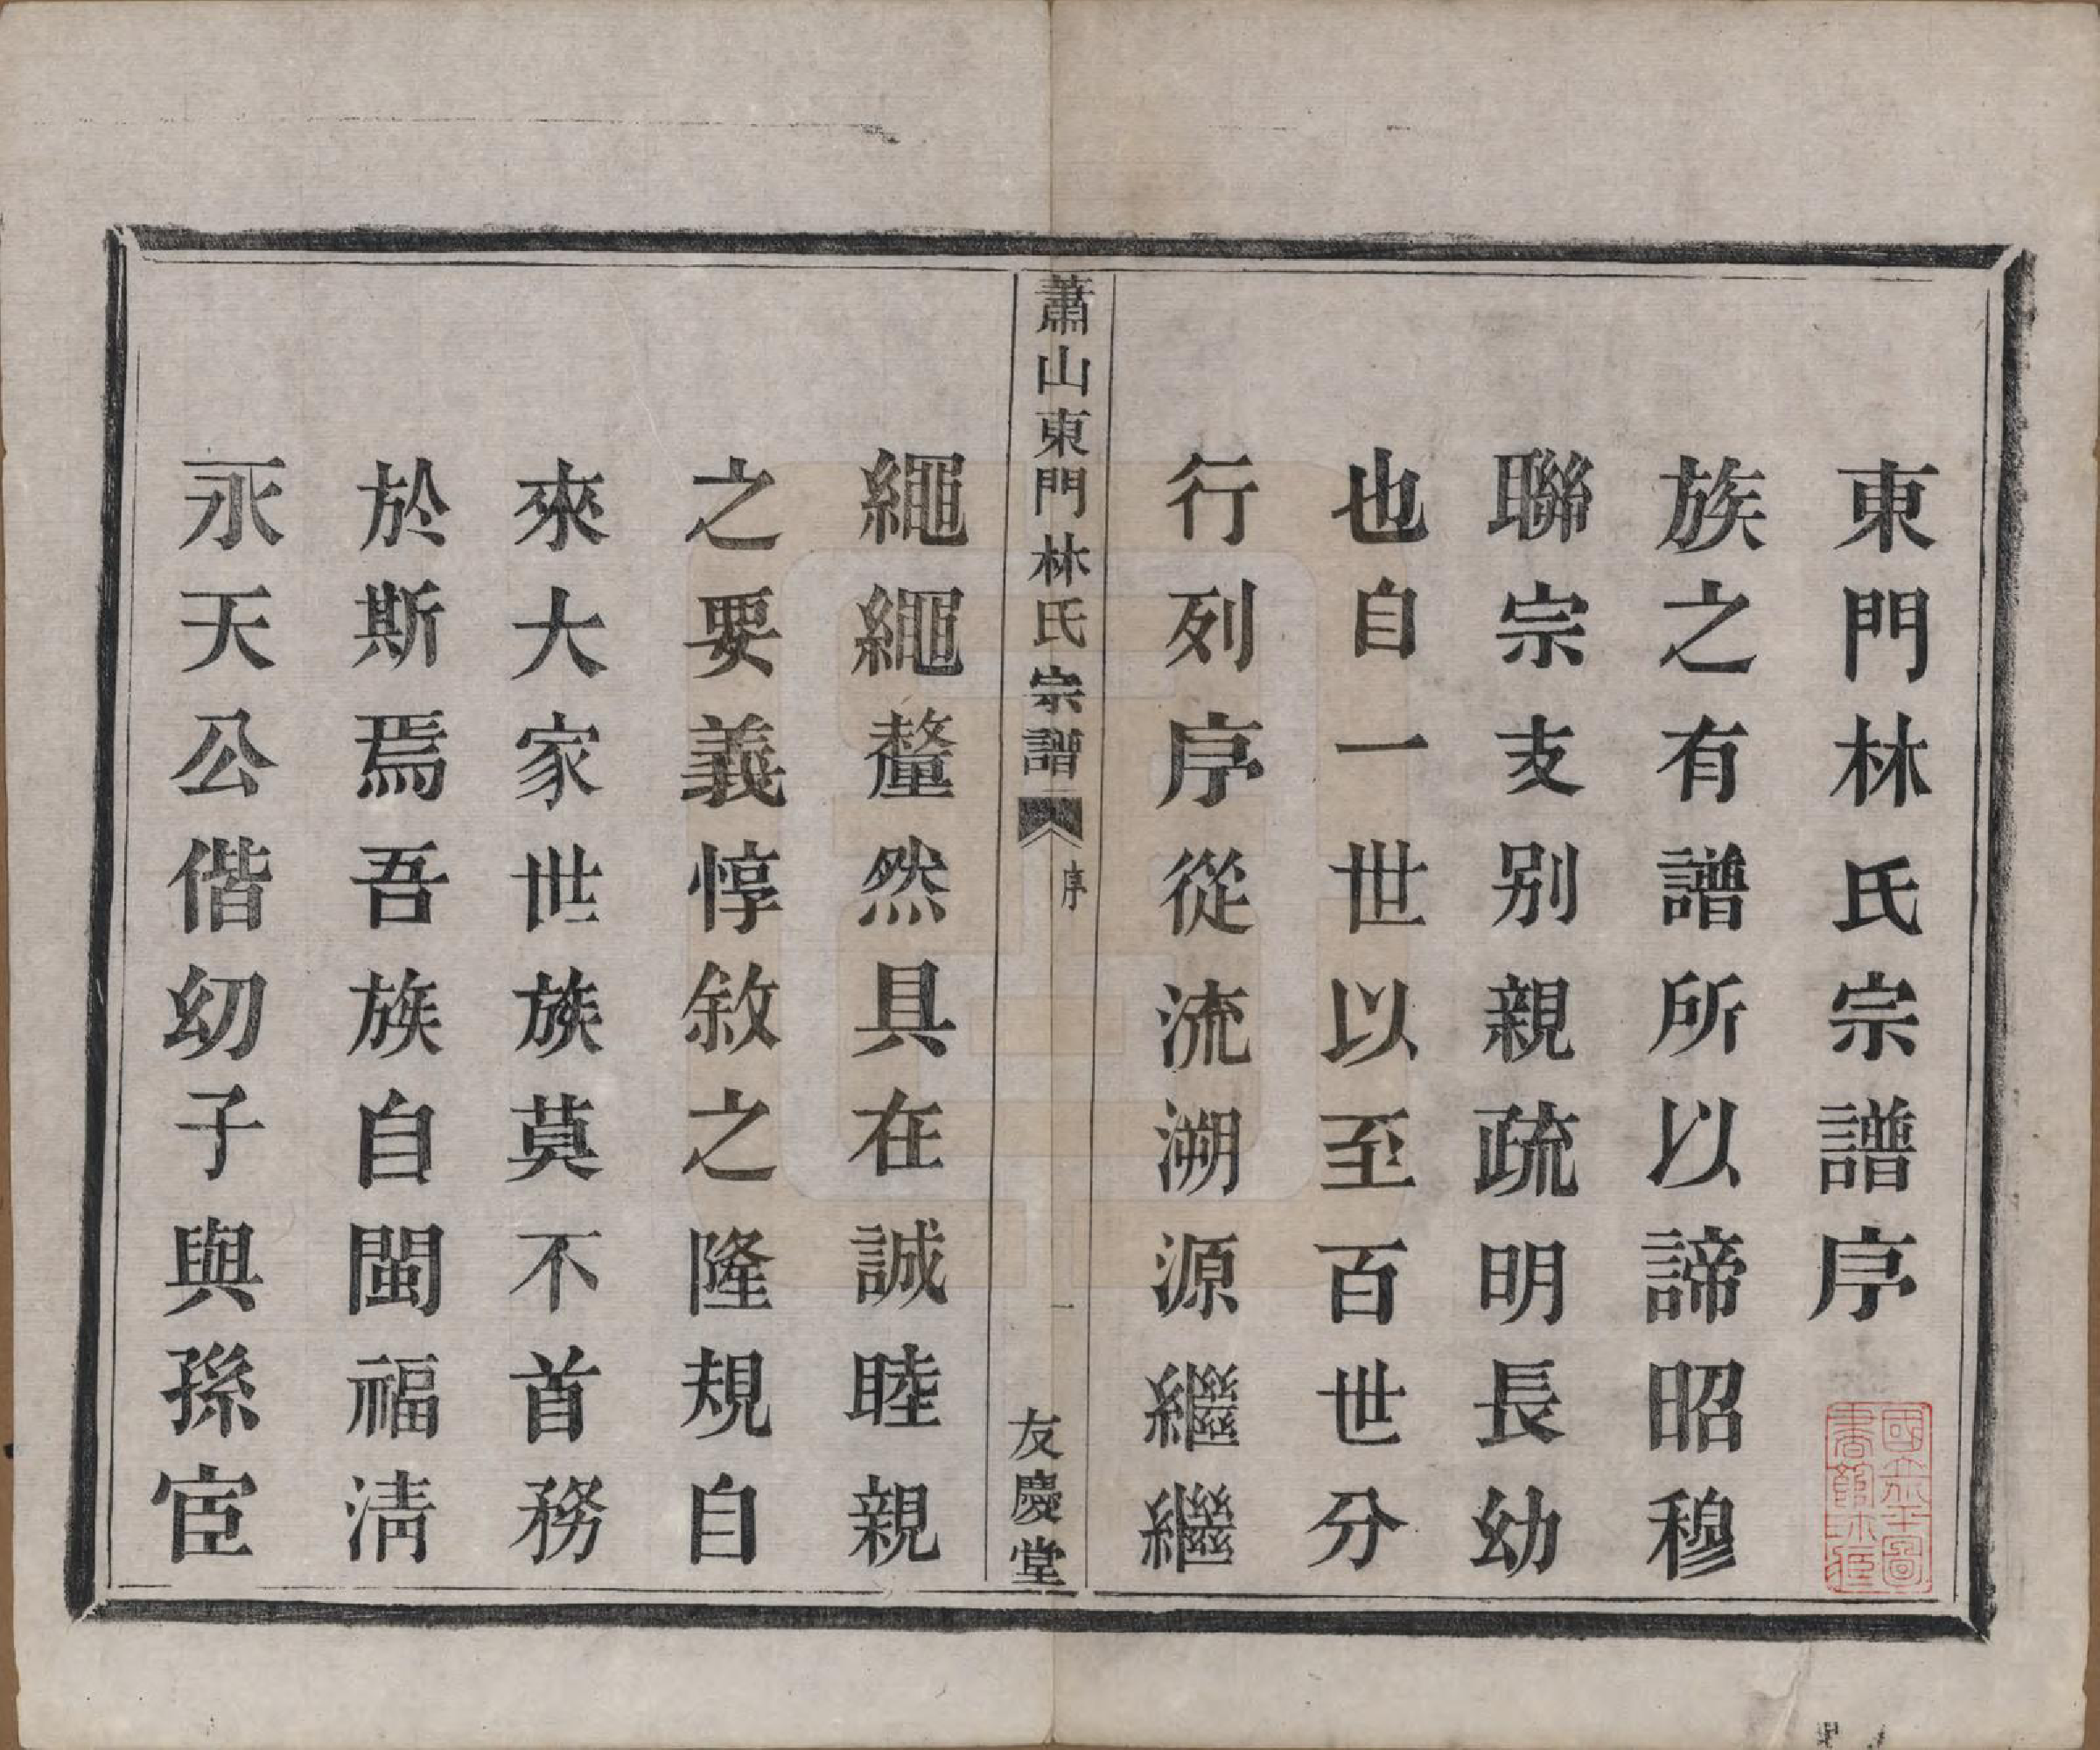 東門林氏宗譜序
族之有譜所以諦昭穆
聯宗支别親疏明長幼
也自一世以至百世分
行列序從流溯源繼繼
蕭山東門林氏宗譜
序
一
友慶堂
繩繩釐然具在誠睦親
之要義惇敘之隆規自
來大家世族莫不首務
於斯焉吾族自閩福清
永天公偕幼子與孫宦